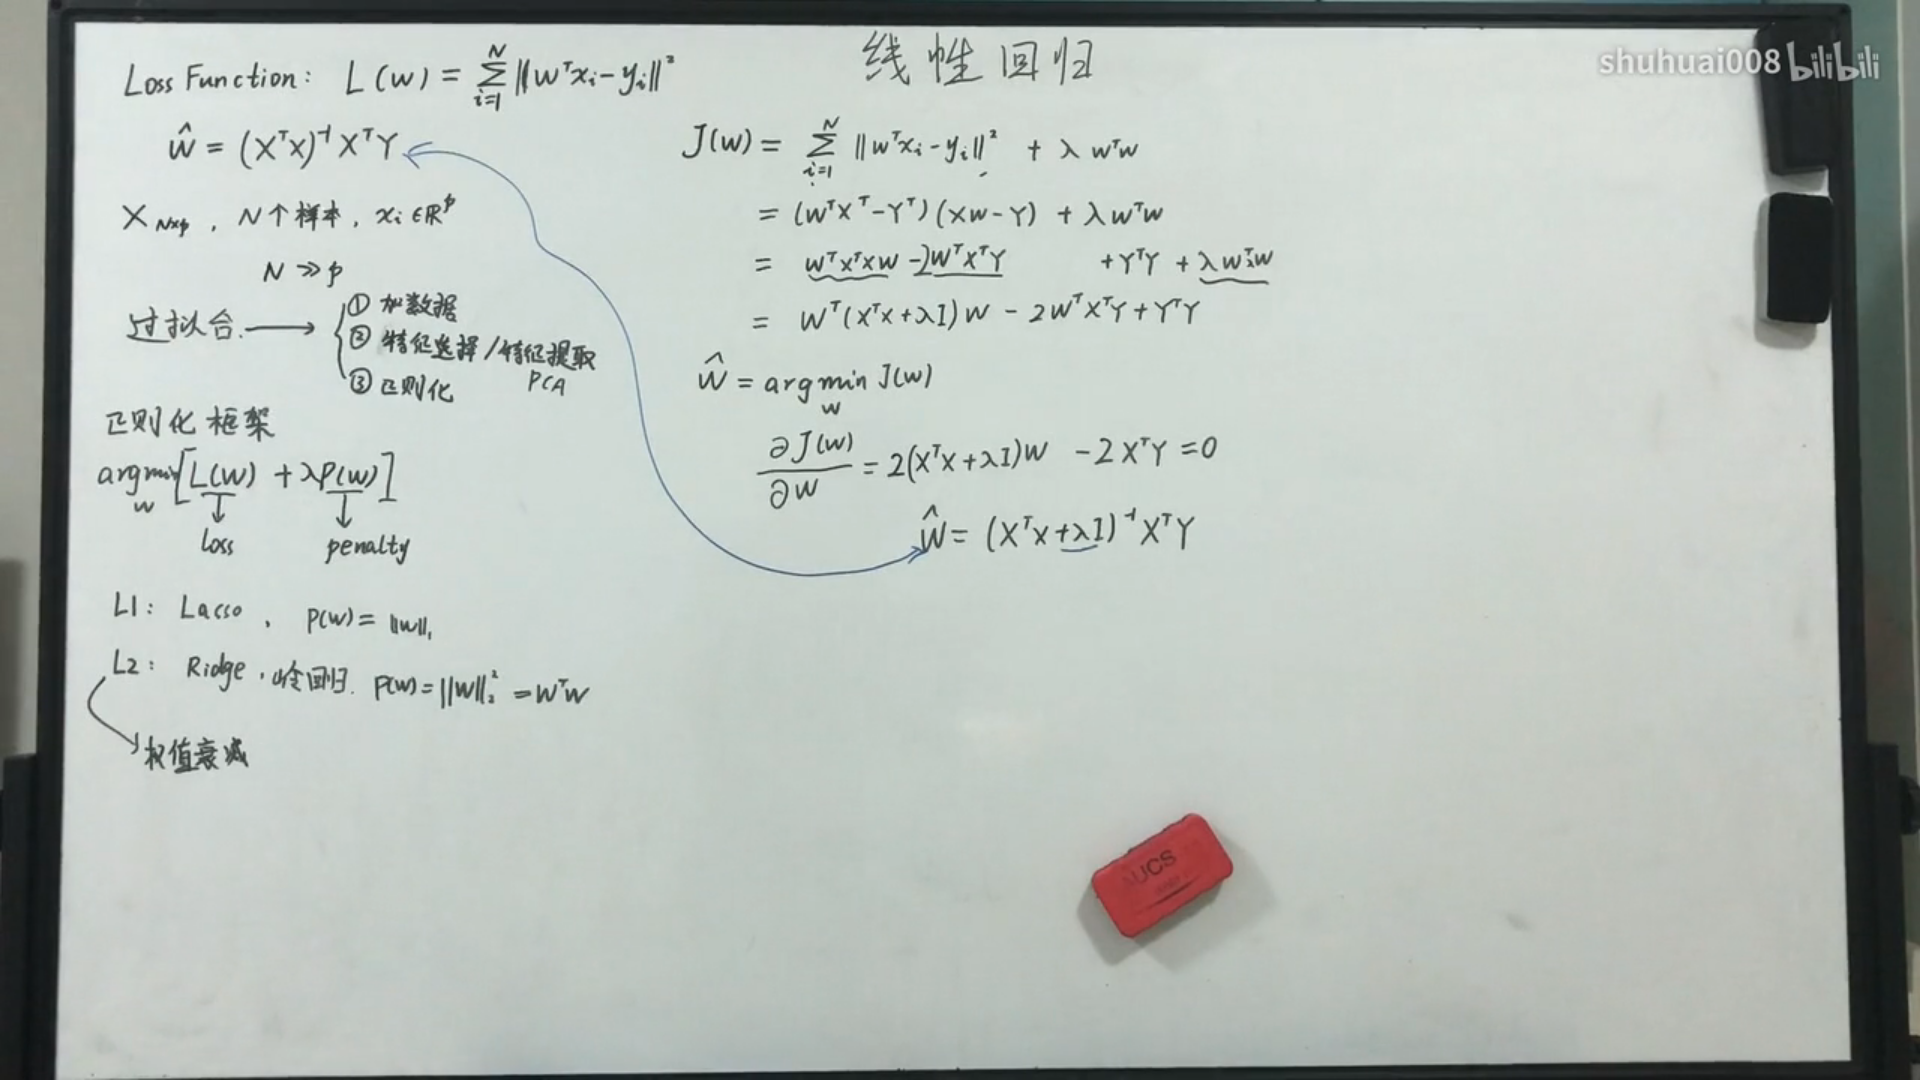 线性回归
shuhuai008 bilibili
Loss Function: L(w) = ∑_{i=1}^{N} ‖wᵀxᵢ - yᵢ‖²
ŵ = (XᵀX)⁻¹XᵀY
X_{N×p}, N个样本, xᵢ∈ℝᵖ
N ≫ p
过拟合. ⟶
① 加数据
② 特征选择/特征提取
PCA
③ 正则化
正则化框架
argmin_w [L(w) + λP(w)]
↓ ↓
loss penalty
L1: Lasso, P(w) = ‖w‖₁
L2: Ridge, 岭回归. P(w) = ‖w‖₂² = wᵀw
权值衰减
J(w) = ∑_{i=1}^{N} ‖wᵀxᵢ - yᵢ‖² + λ wᵀw
= (wᵀXᵀ - Yᵀ)(Xw - Y) + λwᵀw
= wᵀXᵀXw - 2wᵀXᵀY + YᵀY + λwᵀw
= wᵀ(XᵀX + λI)w - 2wᵀXᵀY + YᵀY
ŵ = argmin_w J(w)
∂J(w)/∂w = 2(XᵀX + λI)w - 2XᵀY = 0
ŵ = (XᵀX + λI)⁻¹XᵀY